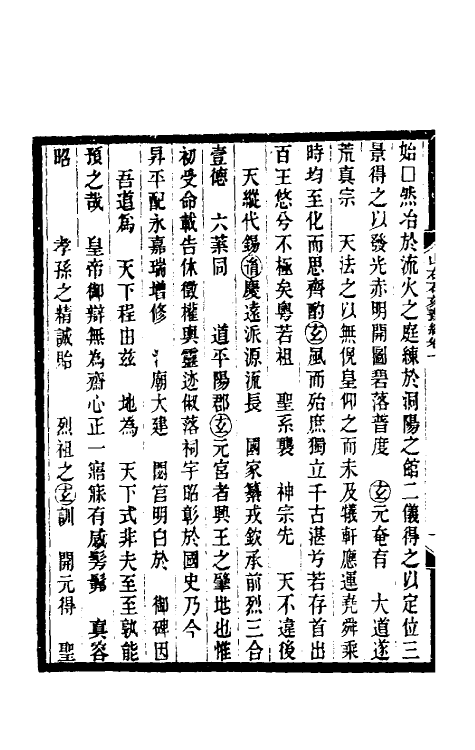 始囗然冶於流火之庭練於洞陽之館二儀得之以定位三
景得之以發光赤明開圖碧落普度　玄元奄有　大道遂
荒真宗　天法之以無倪皇仰之而未及犧軒應運堯舜乘
時均至化而思齊酌玄風而殆庶獨立千古湛兮若存首出
百王悠兮不極矣粵若祖　聖系襲　神宗先　天不違後
天縱代錫慶遠派源流長　國家纂戎欽承前烈三合
壹德　六葉同　道平陽郡玄元宮者興王之肇地也惟
初受命載告休徵權輿靈迹俶落祠宇昭彰於國史乃今
昇平配永嘉瑞增修　廟大建　閟宮明白於　御碑因
吾道為　天下程由茲　地為　天下式非夫至至孰能
預之哉　皇帝御辯無為齋心正一寤寐有感髣髴　真容
昭　孝孫之精誠貽　烈祖之玄訓　開元得　聖
山右石刻叢編卷一